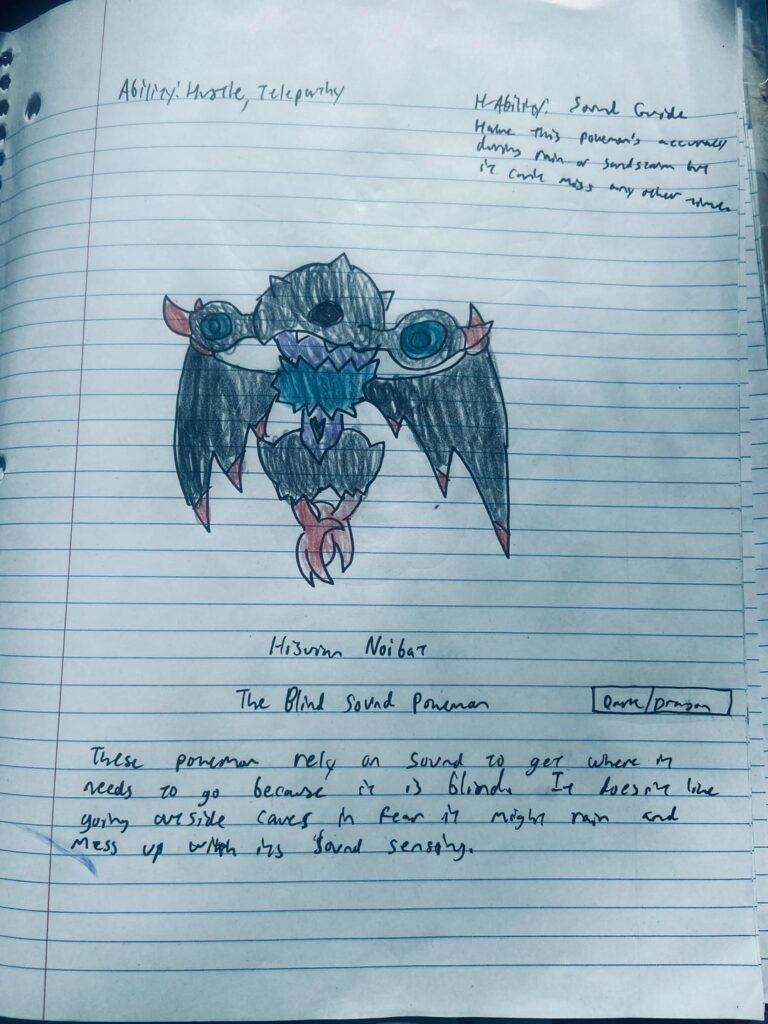 Ability: Hustle, Telepathy
H-Ability: Sound Guide
Halve this pokemon's accuracy
during rain or sandstorm but
it can't miss any other time.
Hisuian Noibat
The Blind Sound Pokemon
Dark/Dragon
These pokemon rely on sound to get where it
needs to go because it is blind. It doesn't like
going outside caves in fear it might rain and
mess up with its sound sensing.